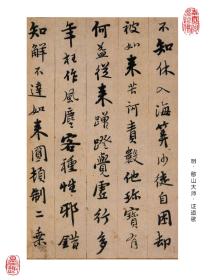 不知休入海筭沙徒自困却
被如来苦訶責數他珎寳有
何益從来蹭蹬覺虛行多
年枉作風塵客種性邪錯
知解不達如来圓頓制二乗
明·憨山大师·证道歌